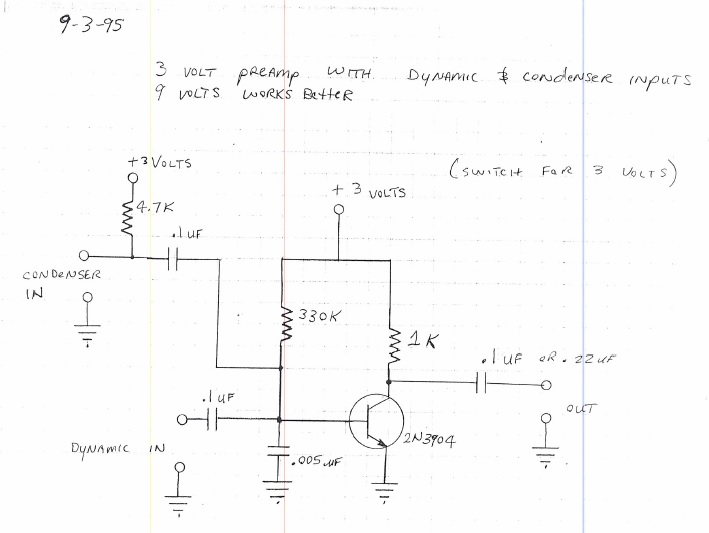 9-3-95
3 VOLT PREAMP WITH DYNAMIC & CONDENSER INPUTS
9 VOLTS WORKS BETTER
(SWITCH FOR 3 VOLTS)
+3 VOLTS
+ 3 VOLTS
4.7K
.1 UF
CONDENSER
IN
330K
1K
.1 UF OR .22 UF
.1 UF
OUT
2N3904
DYNAMIC IN
.005 UF